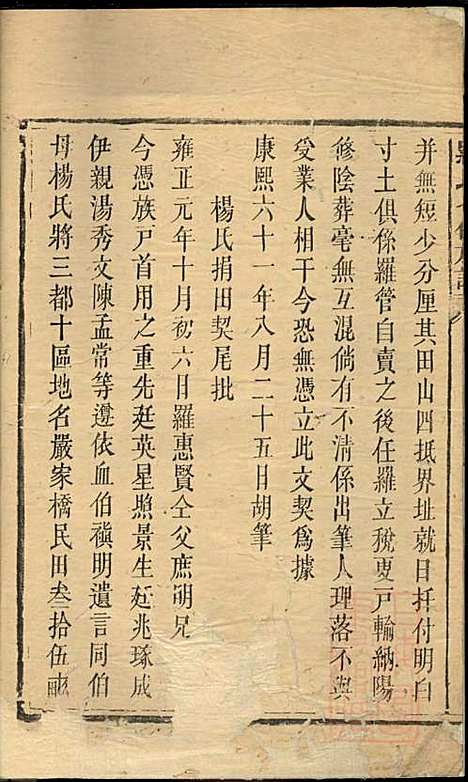 并無短少分厘其田山四抵界址就目扦付明白
寸土俱係羅管自賣之後任羅立稅更戸輸納陽
修陰葬毫無互混倘有不清係出筆人理落不與
受業人相干今恐無憑立此文契爲據
康熙六十一年八月二十五日胡筆
楊氏捐田契尾批
雍正元年十月初六日羅惠賢仝父庶明兄
今憑族戸首用之重先廷英星煦景生廷兆琢成
伊親湯秀文陳孟常等遵依血伯禛明遺言同伯
母楊氏將三都十區地名嚴家橋民田叁拾伍畝